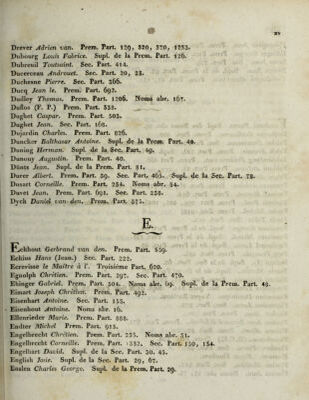 xv
Drever Adrien van. Prem. Part. 129, 320, 370, 1253.
Dubourg Louis Fabrice. Supl. de la Prem. Part. 126.
Dubreuil Toutsaint. Sec. Part. 414.
Ducerceau Androuet. Sec. Part. 20, 23.
Duchesne Pierre. Sec. Part. 366.
Ducq Jean le. Prem. Part. 692.
Dudley Thomas. Prem. Part. 1206. Noms abr. 167.
Duflos (F. P.) Prem. Part. 338.
Dughet Caspar. Prem. Part. 503.
Dughet Jean. Sec. Part. 161.
Dujardin Charles. Prem. Part. 826.
Duncker Balthasar Antoine. Supl. de la Prem. Part. 40.
Duning Herman. Supl. de la Sec. Part. 69.
Dunouy Augustin. Prem. Part. 40.
Dunts Jean. Supl. de la Prem. Part. 81.
Durer Albert. Prem. Part. 59. Sec. Part. 463. Supl. de la Sec. Part. 78.
Dusart Corneille. Prem. Part. 254. Noms abr. 54.
Duvet Jean. Prem. Part. 691. Sec. Part. 258.
Dych Daniel van den. Prem. Part. 572.
E.
Eckhout Gerbrand van den. Prem. Part. 559.
Echius Hans (Jean.) Sec. Part. 222.
Ecrevisse le Maître à l'. Troisieme Part. 620.
Egnolph Chrétien. Prem. Part. 297. Sec. Part. 470.
Ehinger Gabriel. Prem. Part. 504. Noms abr. 69. Supl. de la Prem. Part. 43.
Einsart Joseph Chrétien. Prem. Part. 492.
Eisenhart Antoine. Sec. Part. 155.
Eisenhout Antoine. Noms abr. 16.
Ellenrieder Marie. Prem. Part. 888.
Endter Michel. Prem. Part. 913.
Engelbrecht Chrétien. Prem. Part. 235. Noms abr. 31.
Engelbrecht Corneille. Prem. Part. 332. Sec. Part. 150, 154.
Engelhart David. Supl. de la Sec. Part. 30, 45.
English Josie. Supl. de la Sec. Part. 29, 67.
Enslen Charles George. Supl. de la Prem. Part. 29.